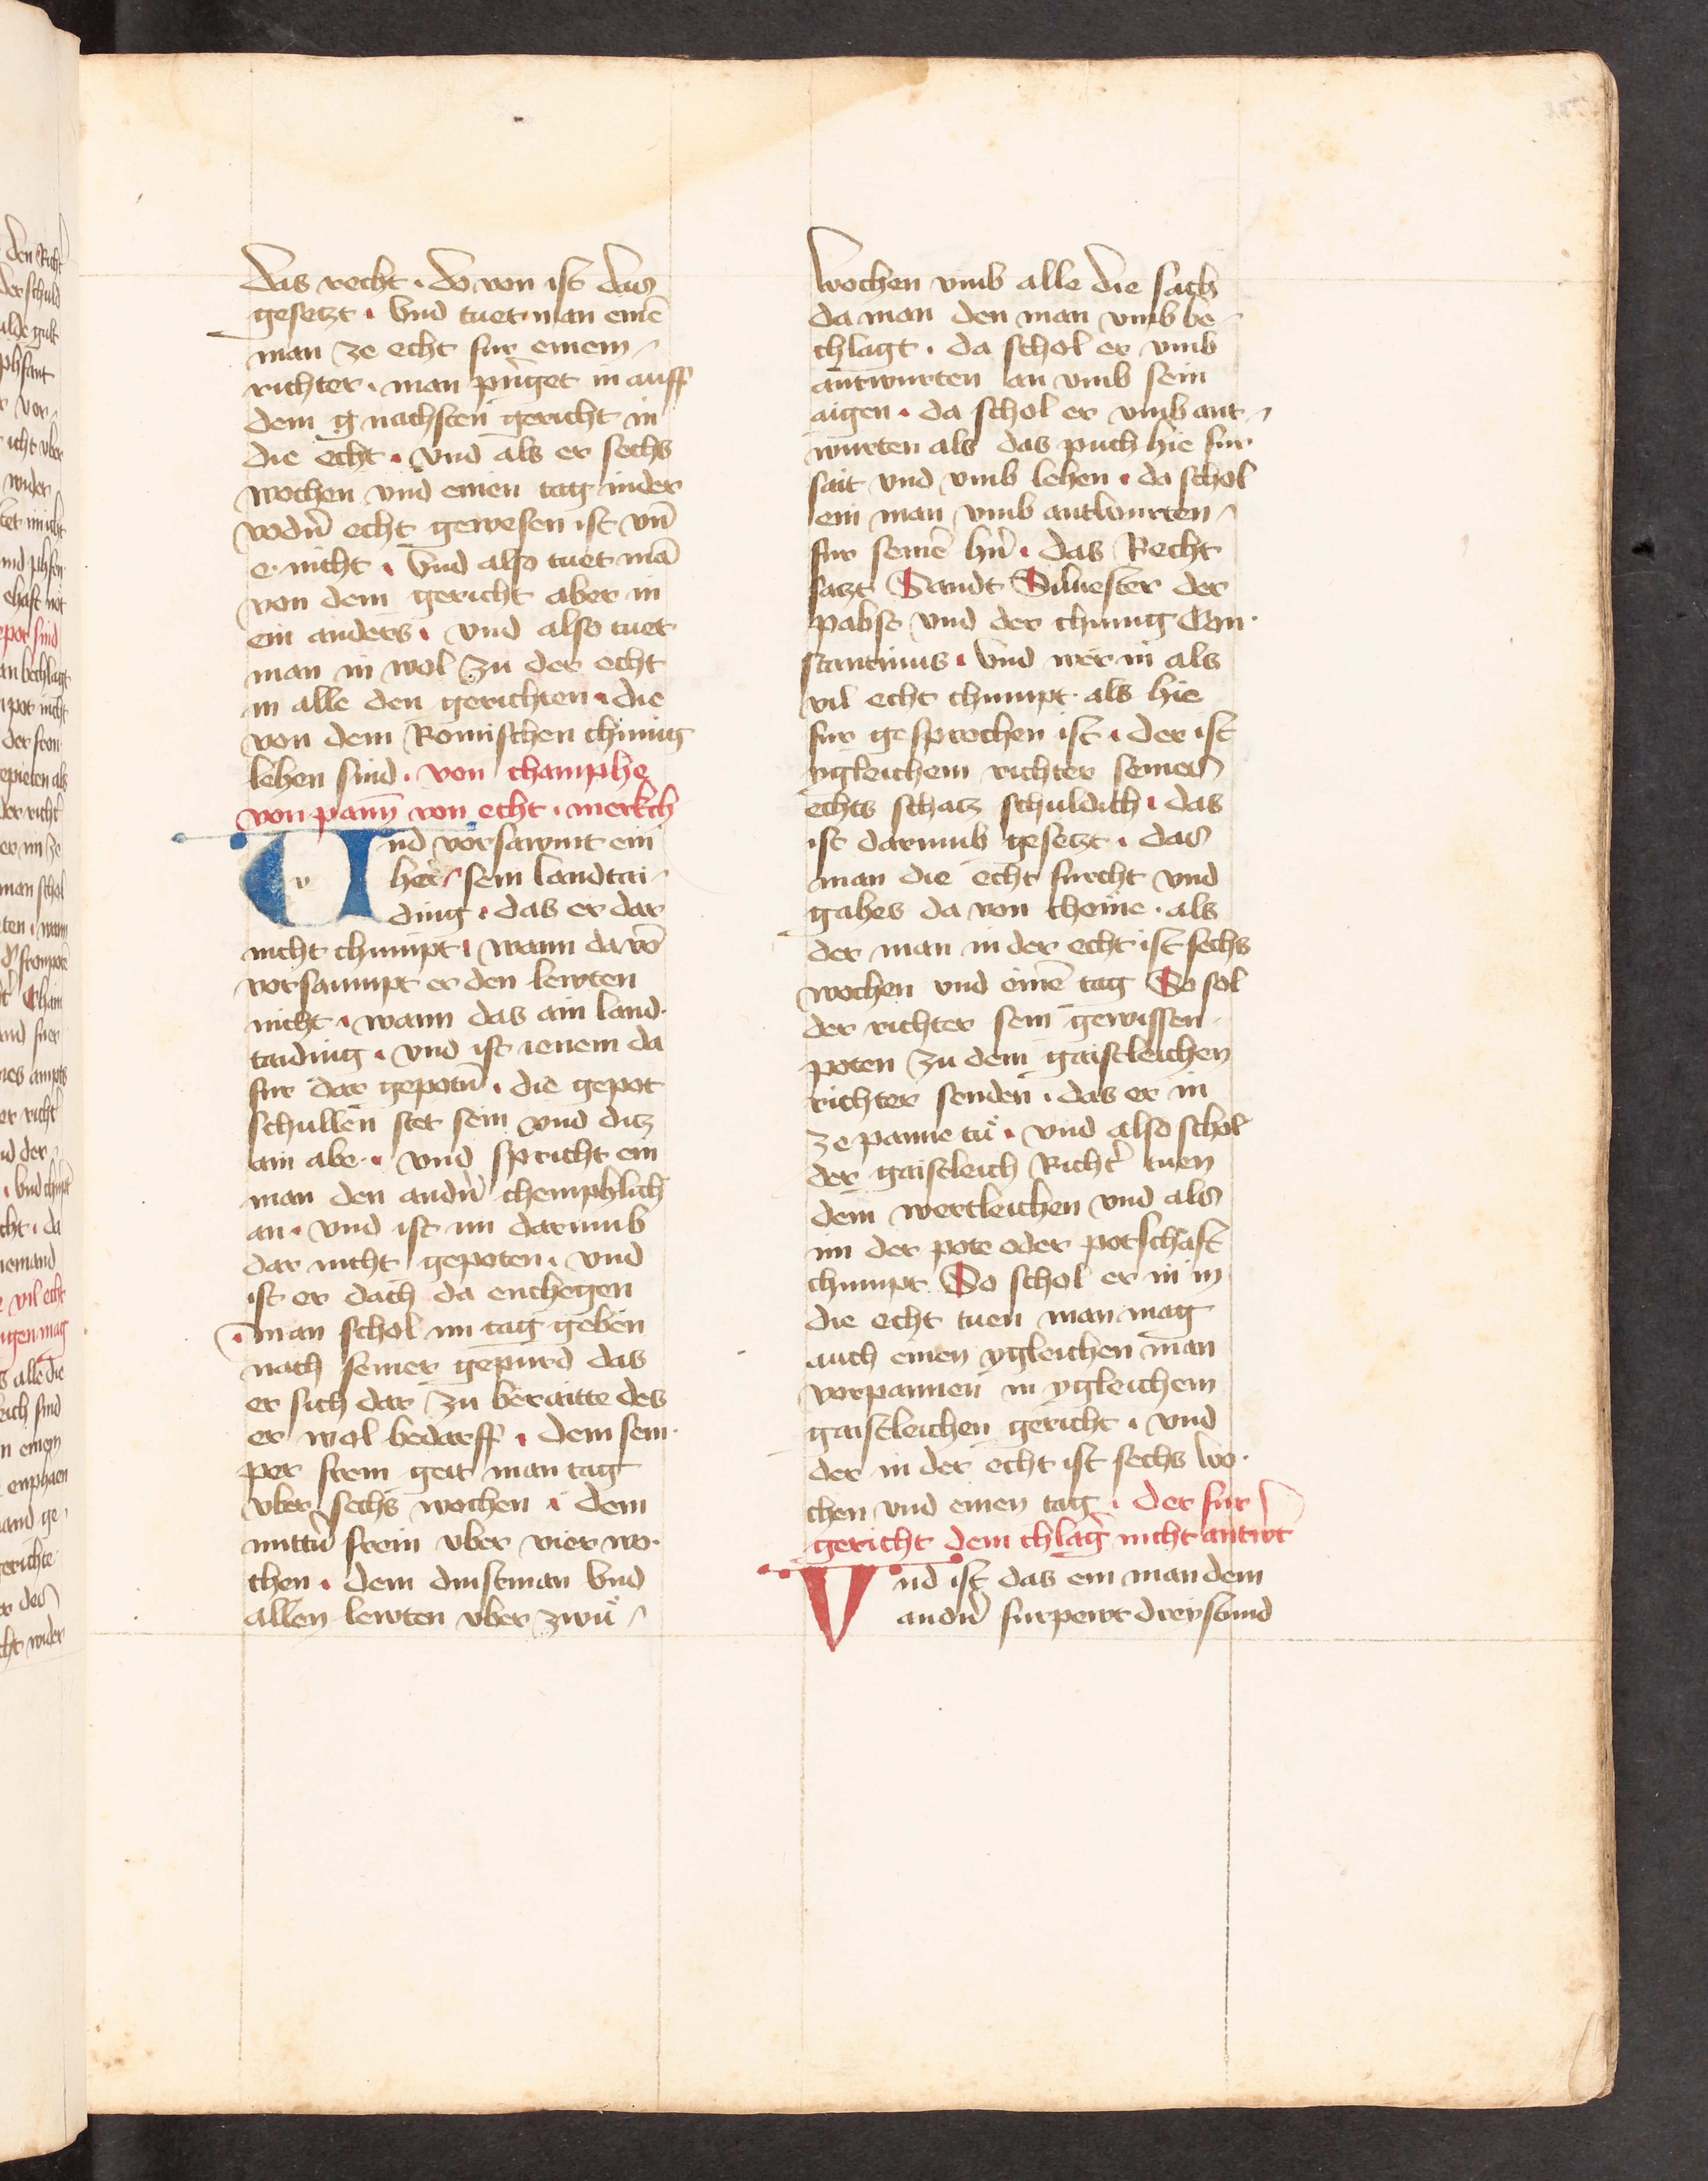 das recht . do von ist das
gesetzt . Vnd tuet man eine͞
man ze echt fur einem
richter . man pringet in auff
dem g nachsten gericht in
die echt . vnd als er sechs
wochen vnd einen tag inder
vodn̄ echt gewesen ist vn̄
e. nicht . Vnd also tuet ma͞
von dem gericht aber in
ein anders . vnd also tuet
man in wol zu der echt
in alle den gerichten . die
von dem Romischen chunig
lehen sind . von champhe
von pann von echt . merkch
Und vorsawmt ein
her sein landtai-
ding . das er dar
nicht chumpt . wann da vo͞
vorsaumpt er den lewten
nicht . wann das ain land-
taiding . vnd ist ienem da
fur dar gepotn̄ . die gepot
schullen stet sein vnd ditz
ain abe . vnd spricht ein
man den andn̄ chemphlich
an . vnd ist im darumb
dar nicht gepoten . vnd
ist er dach da enchegen
. man schol im tag geben
nach seiner gepurd das
er sich dar zu beraitte des
er wol bedarff . dem sem-
per frein geit man tag
vber sechs wochen . dem
mittn̄ frein vber vier wo-
chen . dem dinstman Vnd
allen lewten vber zwu͛
wochen vmb alle die sach
da man den man vmb be-
chlagt . da schol er vmb
antwurten an vmb sein
aigen . da schol er vmb ant-
wurten als das puch hie fur
sait vnd vmb lehen . da schol
ein man vmb antwurten
fur seine͞ hn̄ . das Recht
satzt Sandt Siluester der
pabst vnd der chunig Con-
stantinus . Vnd wer in als
vil echt chumpt . als hie
fur gesprochen ist . der ist
ygleichem richter seines
echts schatz schuldich . das
ist darumb gesetzt . das
man die echt furcht vnd
gahes da von chome . als
der man in der echt ist sechs
wochen vnd eine͞ tag So sol
der richter sein gewissen
poten zu dem gaistleichen
richter senden . das er in
ze panne tu͛ . vnd also schol
der gaistleich Richt͛ tuen
dem wertleichen vnd als
im der pote oder potschaft
chumpt So schol er in in
die echt tuen man mag
auch einen ygleichen man
vorpannen in ygleichem
gaistleichen gericht . vnd
der in der echt ist sechs wo-
chen vnd einen tag . der fur
gericht dem chlag͛ nicht antwt
Vnd ist das ein man dem
andn̄ furpewt dreystund